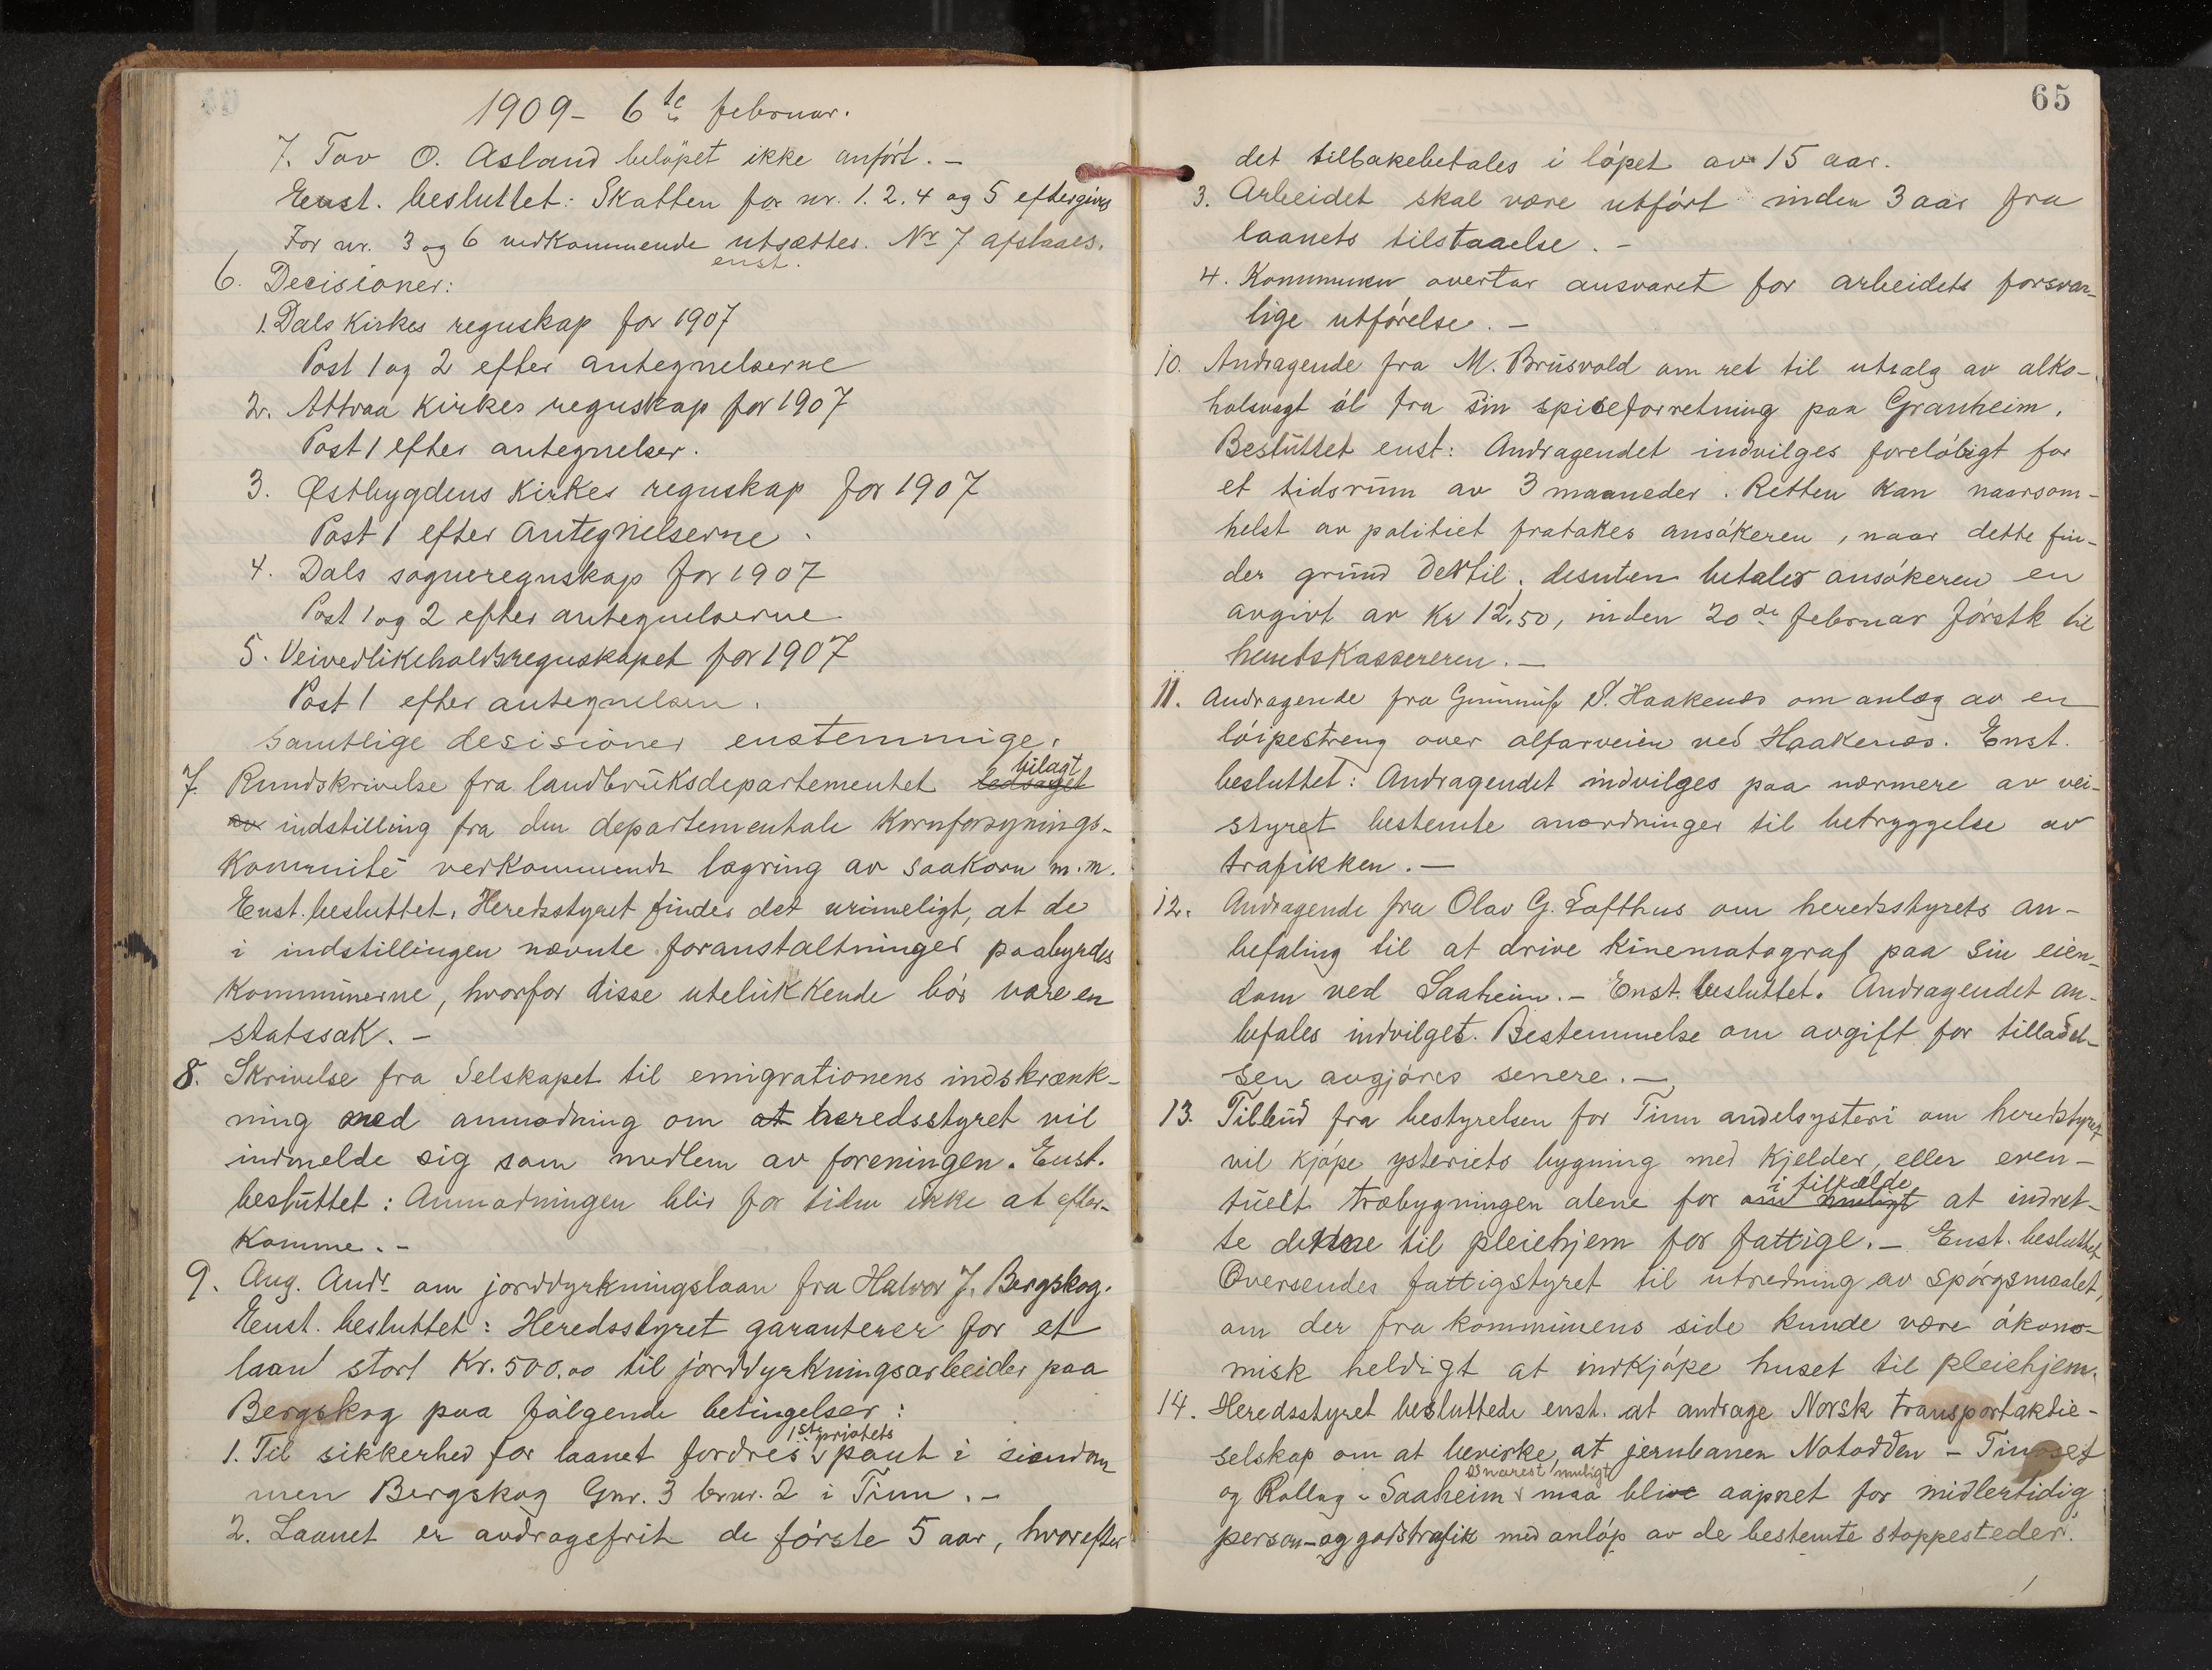 1909 - 6te februar.
7. Tov O. Asland beløpet ikke anført. -
Enst. besluttet: Skatten for nr. 1. 2. 4 og 5 eftergives
For nr. 3 og 6 vedkommende utsættes. Nr 7 afslaaes.
enst.
6. Decisioner:
1. Dals Kirkes regnskap for 1907
Post 1 og 2 efter antegnelserne
2. Attraa Kirkes regnskap for 1907
Post 1 efter antegnelser.
3. Østbygdens Kirkes regnskap for 1907
Post 1 efter antegnelserne.
4. Dals sogneregnskap for 1907
Post 1 og 2 efter antegnelserne.
5. Veivedlikeholdsregnskapet for 1907
Post 1 efter antegnelsen.
samtlige desisioner enstemmige.
bilagt
7. Rundskrivelse fra landbruksdepartementet ledsaget
av indstilling fra den departementale Kornforsynings-
Kommité vedkommende lagring av saakorn m.m.
Enst. besluttet. Heredsstyret finder det urimeligt, at de
i indstillingen nævnte foranstaltninger paabyrdes
Kommunerne, hvorfor disse utelukkende bør være en
statssak. -
8. Skrivelse fra Selskapet til emigrationens indskrænk-
ning med anmodning om at heredsstyret vil
indmelde sig som medlem av foreningen. Enst.
besluttet: Anmodningen blir for tiden ikke at efter-
Komme. -
9. Ang. Andr. om jorddyrkningslaan fra Halvor J. Bergskog.
Enst. besluttet: Heredsstyret garanterer for et
laan stort Kr. 500.00 til jorddyrkningsarbeider paa
Bergskog paa følgende betingelser:
1ste priotets
1. Til sikkerhed for laanet fordres pant i eiendom
men Bergskog Gnr. 3 brnr. 2 i Tinn. -
2. Laanet er avdragsfrit de første 5 aar, hvorefter
65
det tilbakebetales i løpet av 15 aar.
3. Arbeidet skal være utført inden 3 aar fra
laanets tilstaaelse. -
4. Kommunen overtar ansvaret for arbeidets forsvar-
lige utførelse. -
10. Andragende fra M. Brusvold om ret til utsalg av alko-
holsvagt øl fra sin spiseforretning paa Granheim.
Besluttet enst: Andragendet indvilges foreløbigt for
et tidsrum av 3 maaneder. Retten kan naarsom-
helst av politiet fratakes ansøkeren, naar dette fin-
der grund dertil, desuten betaler ansøkeren en
avgivt av Kr 12,50, inden 20de februar førstk til
heredskassereren. -
11. Andragende fra Gunnulf S. Haakenes om anlæg av en
løipestreng over alfarveien ved Haakenes. Enst.
besluttet: Andragendet indvilges paa nærmere av vei-
styret bestemte anordninger til betryggelse av
trafikken. -
12. Andragende fra Olav G. Lofthus om heredsstyrets an-
befaling til at drive kinematograf paa sin eien-
dom ved Saaheim. - Enst. besluttet. Andragendet an-
befales indvilget. Bestemmelse om avgift for tilladel-
sen avgjøres senere. -
13. Tilbud fra bestyrelsen for Tinn andelsysteri om heredstyret
vil kjøpe ysteriets bygning med kjelder, eller even-
i tilfælde
tuelt træbygningen alene for om muligt at indret-
te denne til pleiehjem for fattige. - Enst. besluttet
Oversendes fattigstyret til utredning av spørgsmaalet,
om der fra kommunens side kunde være økono-
misk heldigt at indkjøpe huset til pleiehjem.
14. Heredsstyret besluttede enst. at andrage Norsk transportaktie-
selskap om at bevirke, at jernbanen Notodden - Tinoset
snarest muligt
og Rollag - Saaheim maa blive aapnet for midlertidig
person- og godstrafik med anløp av de bestemte stoppesteder.